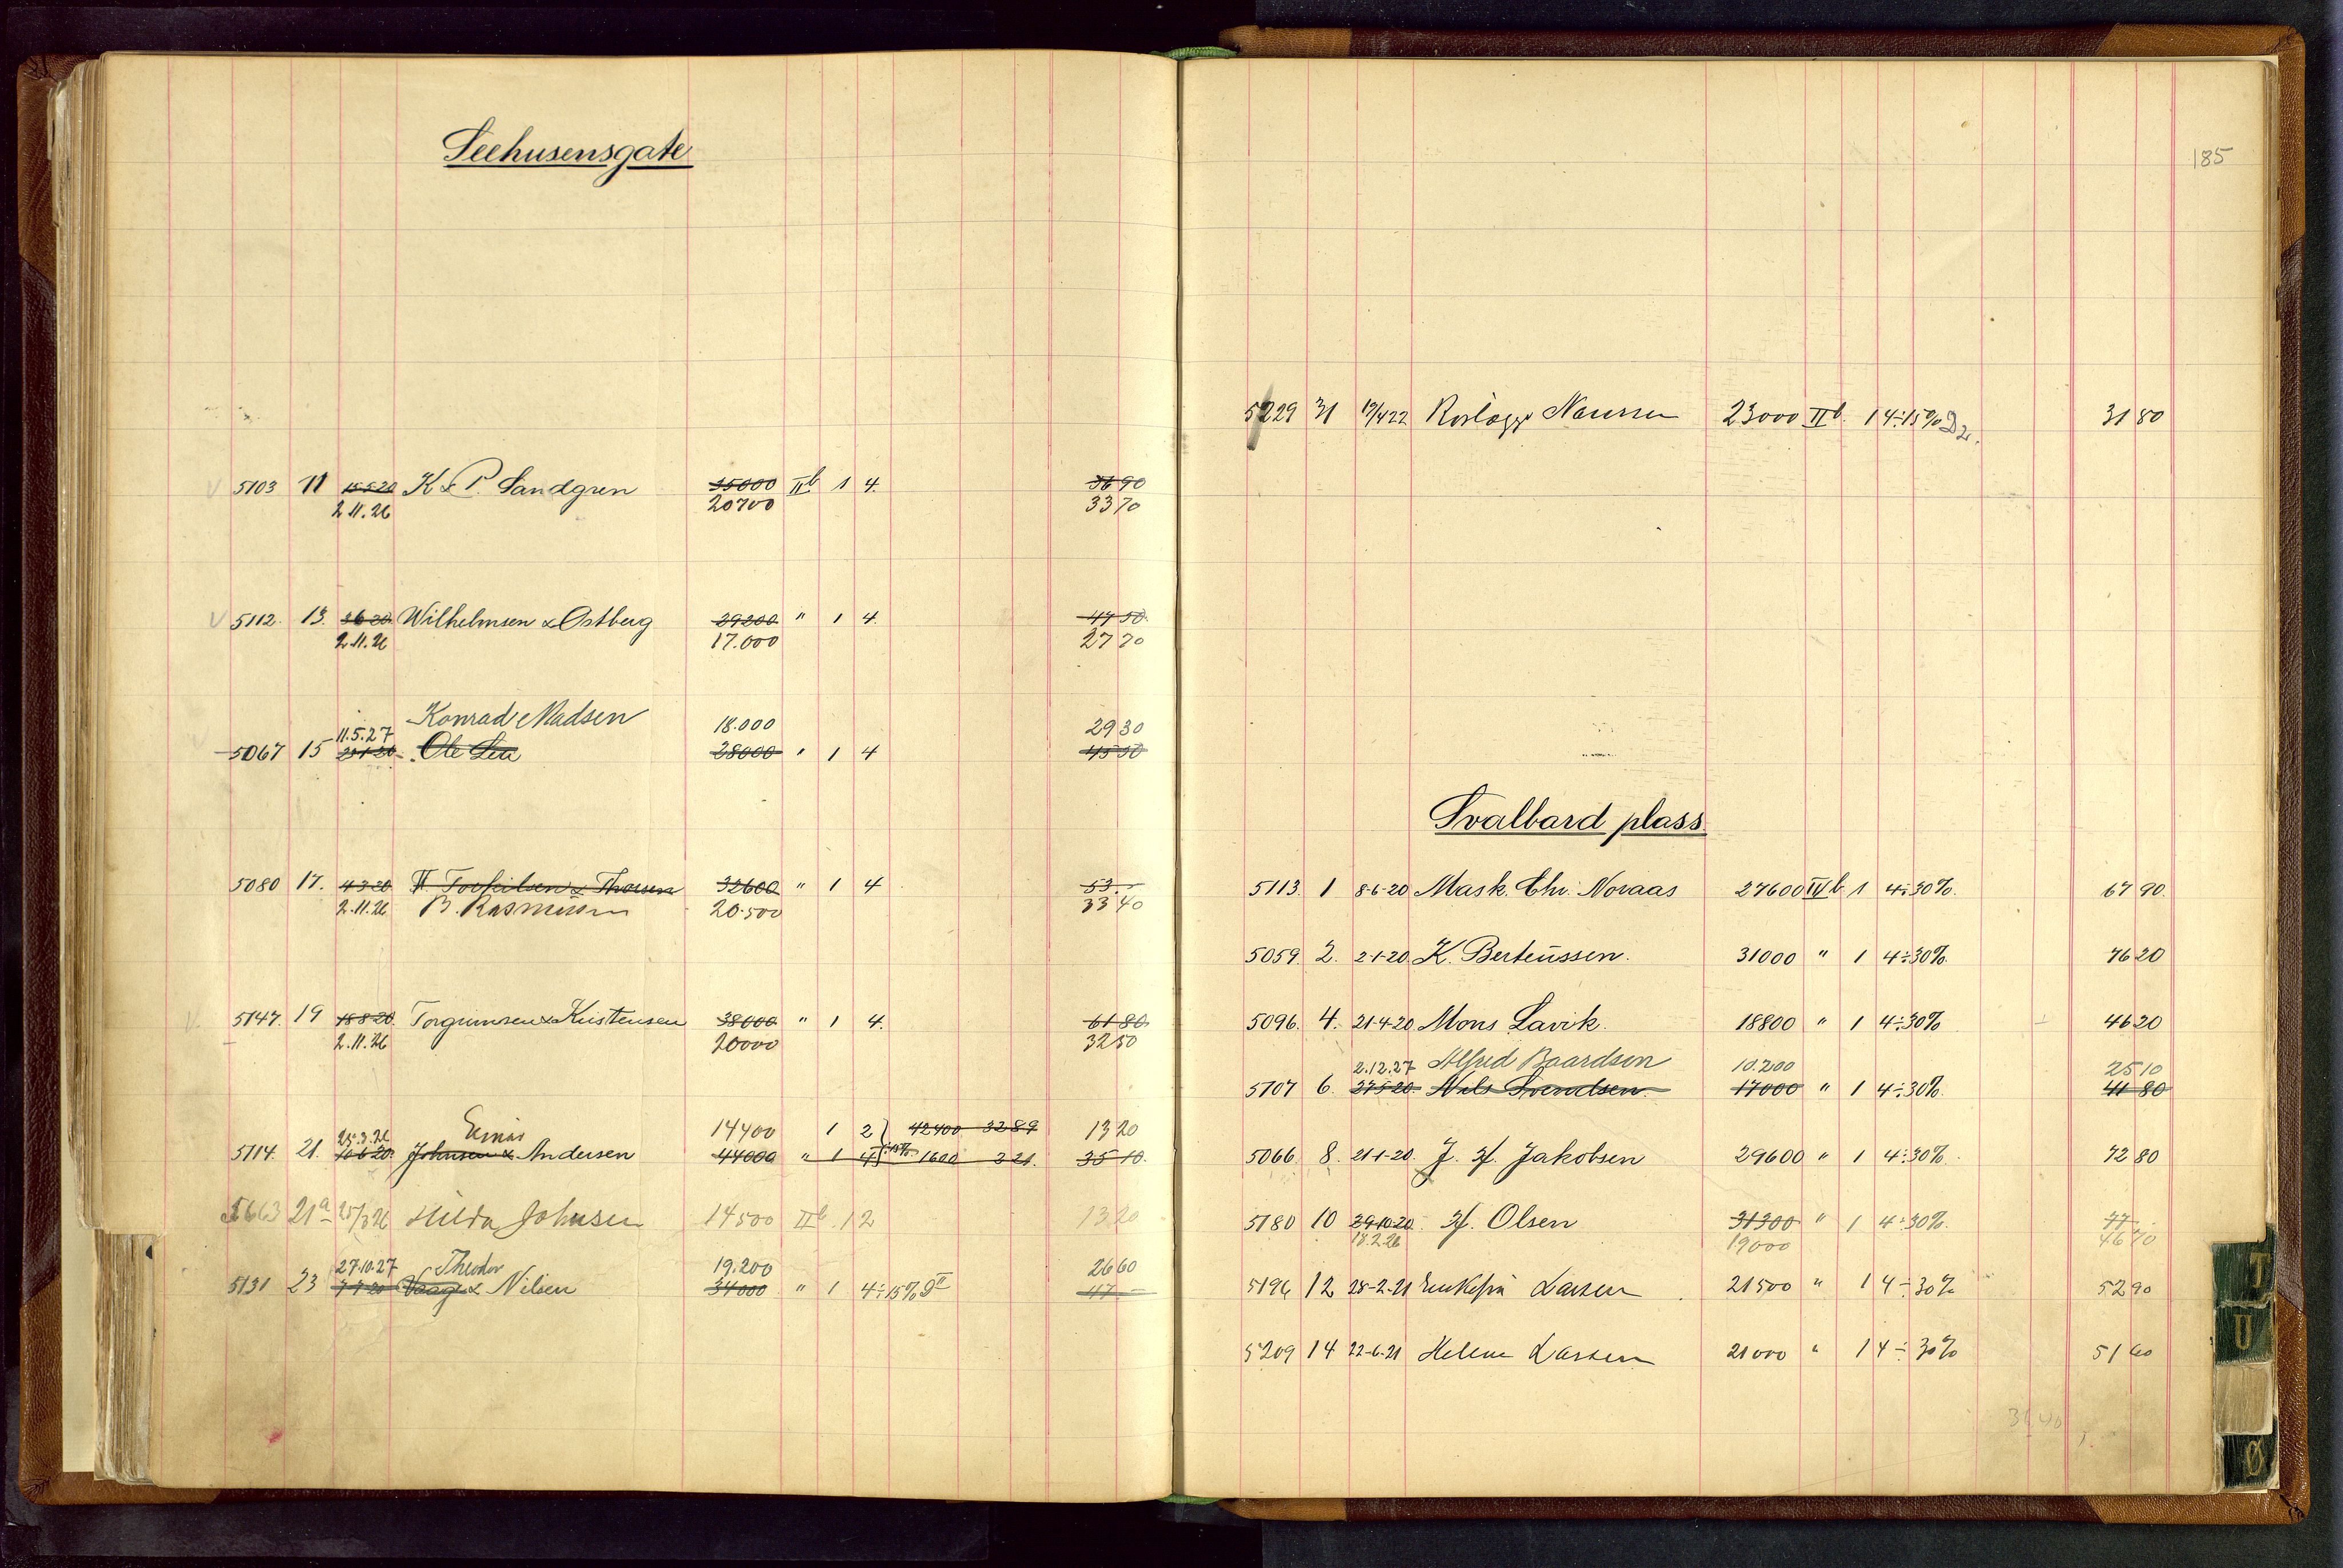 Seehusensgate
5103 11 15-5-20 K & P. Sandgren 35000 IIb 1 4. 56 90
2.11.26 20700 33 70
5112. 13. 3-6-20 Wilhelmsen & Ostberg 29200 " 1 4. 47 50.
2.11.26 17.000 27 70
Konrad Madsen 18.000 29 30
11.5.27
5067 15 Ole Lea 28000 " 1 4 45 50
5080 17. 4-3-20 & Thorsen 32600 " 1 4 53.-
2.11.26 B. Rasmussen 20.500 33 40
5147. 19 18-8-20. Torgrimsen & Kristensen 38000 " 1 4. 61 80.
2.11.26 20000 32 50
Einar 14400 1 2 } 42400 32 89 13 20
25.3.26
5114. 21. 10-6-20. Johnsen & Andersen 44000 " 1 4 } ÷15% 1600 2 21. 35 10.
5663 21a 25/3 26 Hilda Johnsen 14500 IIb 1 2 13 20
27.10.27 Theodor 19.200 26 60
5131 23 7-7-20 Vaage & Nilsen 34000 " 1 4÷15% 47 -
185
5229 31 19/4 22 Naussen 23000 IIb. 1 4÷15% 31 80
Svalbard plass.
5113. 1 8-6-20 Mask. Chr. Novaas 27600 IVb 1 4÷30%. 67 90.
5059. 2. 2-1-20. K. Berteussen. 31000 " 1 4÷30%. 76 20
5096. 4. 21-4-20 Mons Lavik. 18800 " 1 4÷30% 46 20
2.12.27 Alfred Baardsen 10.200 25 10
5107 6. 27-5-20. Nils Svendsen. 17000 " 1 4÷30%. 41 80
5066. 8. 21-1-20. J. H. Jakobsen 29600 " 1 4÷30%. 72 80
5180 10 29-10-20. H. Olsen 31300 " 1 4÷30%. 77 -
18.2.26 19000 46 70
5196 12 28-2-21 Enkefru Larsen 21500 " 1 4÷30% 52 90
5209 14 22-6-21 Helene Larsen 21000 " 1 4÷30% 51 60
T
U
Ø